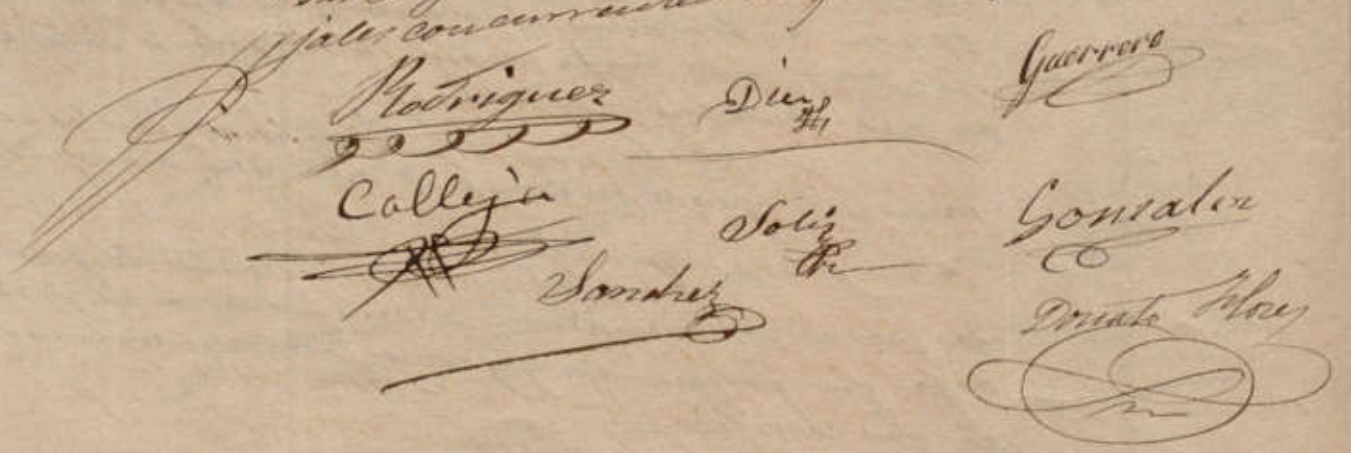 jales concurrentes
Rodriguez Diez Guerrero
Calleja Soliz Gonzalez
Sanchez Donato Flores